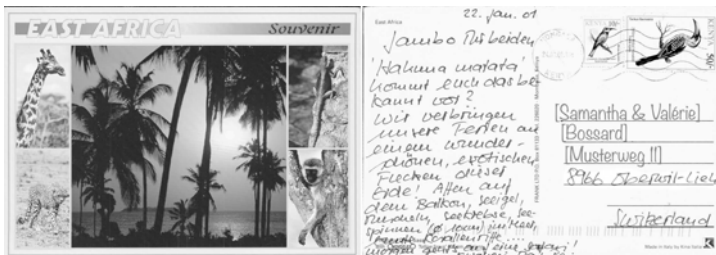 EAST AFRICA
Souvenir
East Africa
22. Jan. 01
Jambo Ihr beiden
'Hakuna matata'
kommt euch das be
kannt vor?
Wir verbringen
unsere Ferien an
einem wunder-
schönen, exotischen
Flecken dieser
Erde! Affen auf
dem Balkon, Seeigel,
Muscheln, Seekrebse, See-
spinnen (ø 10cm) im
Korallenriff....
morgen auf eine Safari!
KENYA
50/-
KENYA
[Samantha & Valérie]
[Bossard]
[Musterweg 11]
8966 Oberwil-Lieli
Switzerland
Made in Italy by